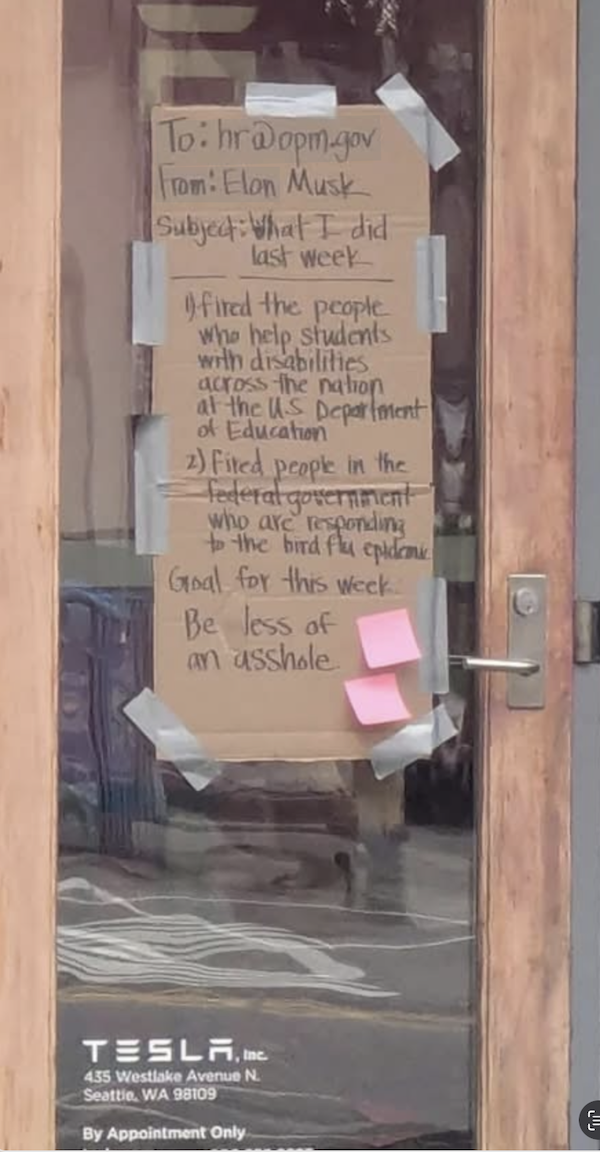 To: hr@opm.gov
From: Elon Musk
Subject: What I did
last week
1) fired the people
who help students
with disabilities
across the nation
at the U.S Department
of Education
2) Fired people in the
federal government
who are responding
to the bird flu epidemic
Goal for this week:
Be less of
an asshole.
TESLA, Inc.
435 Westlake Avenue N.
Seattle, WA 98109
By Appointment Only